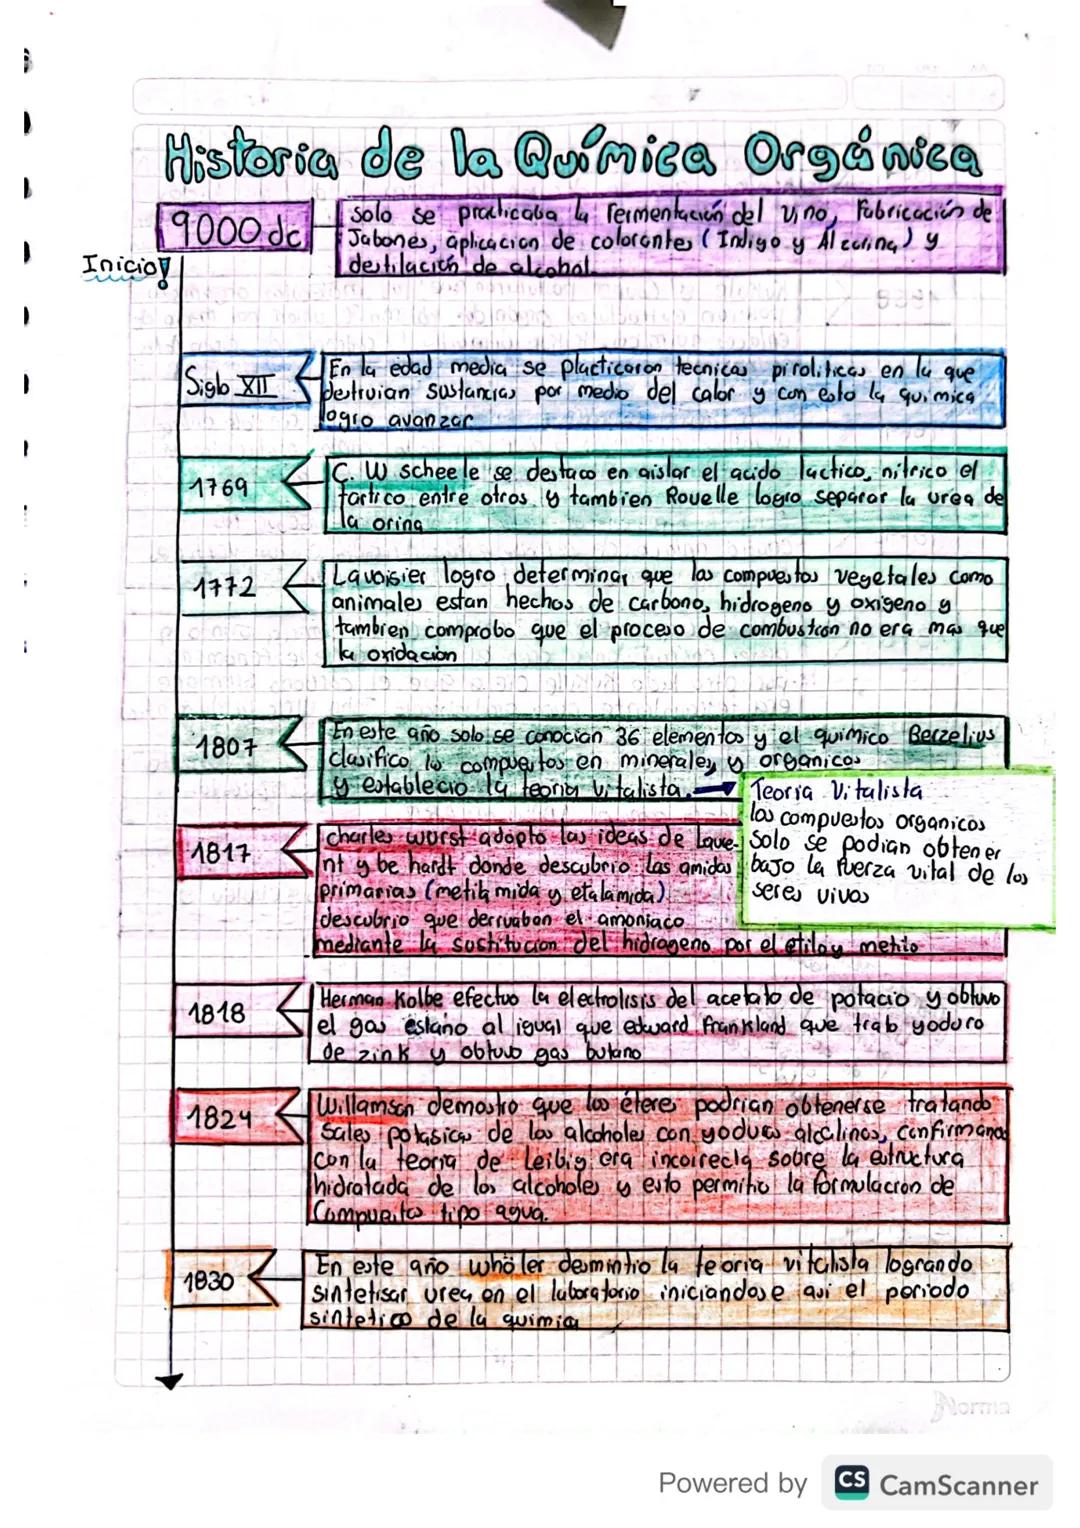 Historia de la Química Orgánica
9000 dc
Inicio!
Solo se practicaba la fermentación del vino, Fabricación de
Jabones, aplicacion de colorantes (Indigo y Alizarina) y
destilación de alcohol.
Siglo XII
En la edad media se placticaron tecnicas piroliticas en la que
destruian sustancias por medio del calor y con esto la quimica
logro avanzar
1769
C. W scheele se destaco en aislar el acido lactico, nitrico el
tartico entre otros y tambien Rouelle logro separar la urea de
la orina
1772
Lavoisier logro determinar que los compuestos vegetales como
animales estan hechos de carbono, hidrogeno y oxigeno y
tambien comprobo que el proceso de combustion no era mas que
la oxidación
1807
En este año solo se conocian 36 elementos y el quimico Berzelius
clasifico los compuestos en minerales y organicos
y establecio la teoria vitalista.
Teoria Vitalista
los compuestos organicos
Solo se podian obtener
bajo la fuerza vital de los
seres vivos
1817
charles wurst adopto las ideas de Laure-
nt y be hardt donde descubrio las amidas
primarias (metilamida y etalamida).
descubrio que derivaban el amoniaco
mediante la sustitucion del hidrogeno por el etilo y metilo
1818
Herman Kolbe efectuo la electrolisis del acetato de potacio y obtuvo
el gas estano al igual que edward frankland que trab yoduro
de zink y obtuvo gas butano
1824
Willamson demostro que los éteres podrian obtenerse tratando
Sales potasicas de los alcoholes con yoduros alcalinos, confirmando
con la teoria de Leibig era incorrecta sobre la estructura
hidratada de los alcoholes y esto permitio la formulacion de
Compuestos tipo agua.
1830
En este año whöler desmintio la teoria vitalista logrando
sintetisar urea en el laboratorio iniciandose asi el periodo
sintetico de la quimia
Norma
Powered by CS CamScanner